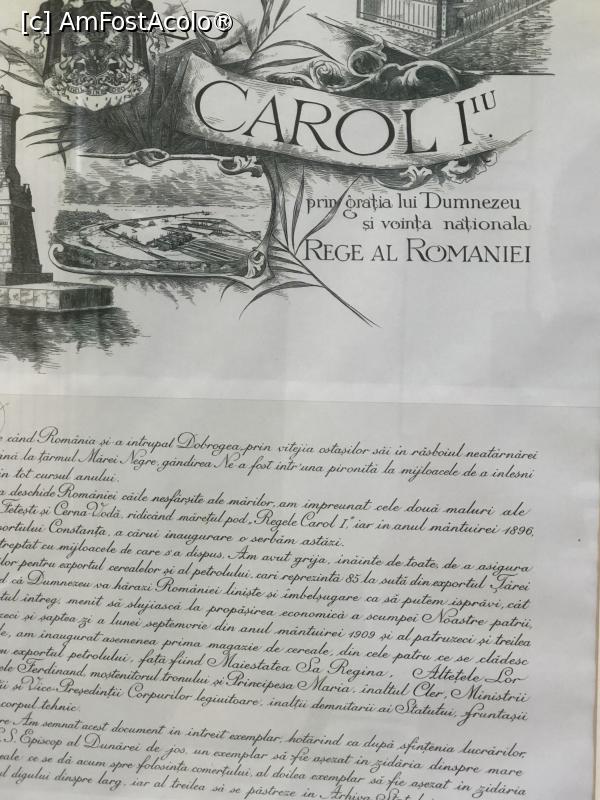 [c] AmFostAcolo®
CAROL I IU.
prin grația lui Dumnezeu
și voința naționala
REGE AL ROMANIEI
când România și-a intrupat Dobrogea, prin vitejia ostașilor săi in răsboiul neatârnărei
până la țărmul Mărei Negre, gândirea Ne-a fost intr'una pironită la mijloacele de a inlesni
in tot cursul anului.
a deschide României căile nesfârșite ale mărilor, am impreunat cele două maluri ale
Fetești și Cerna-Vodă, ridicând mărețul pod „Regele Carol I," iar in anul mântuirei 1896,
portului Constanța, a cărui inaugurare o serbăm astăzi.
treptat cu mijloacele de care s'a dispus. Am avut grija, inainte de toate, de a asigura
lor pentru exportul cerealelor și al petrolului, cari reprezintă 85 la sută din exportul Țărei
d că Dumnezeu va hărăzi României liniște și imbelșugare ca să putem isprăvi, cât
tul intreg, menit să slujiască la propășirea economică a scumpei Noastre patrii,
zeci și șaptea zi a lunei septemvrie din anul mântuirei 1909 și al patruzeci și treilea
le, am inaugurat asemenea prima magazie de cereale, din cele patru ce se clădesc
u exportul petrolului, față fiind Maiestatea Sa Regina, Altețele Lor
ele Ferdinand, moștenitorul tronului și Principesa Maria, inaltul Cler, Miniștrii
ții și Vice-Președinții Corpurilor legiuitoare, inalții demnitari ai Statului, fruntașii
corpul tehnic.
re Am semnat acest document in intreit exemplar, hotărind ca după sfințenia lucrărilor,
P.S. Episcop al Dunărei de jos, un exemplar să fie așezat in zidăria dinspre mare
eale ce se dă acum spre folosința comerțului, al doilea exemplar să fie așezat in zidăria
ul digului dinspre larg, iar al treilea să se păstreze in Arhiva